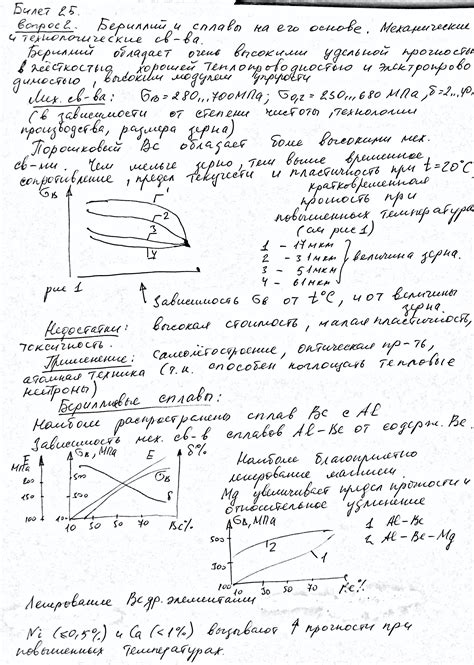 Билет 25.
Вопрос 2. Бериллий и сплавы на его основе. Механические
и технологические св-ва.
Бериллий обладает очень высокими удельной прочностью
и жёсткостью, хорошей теплопроводностью и электропрово
димостью, высоким модулем упругости
Мех. св-ва: σв = 280...700МПа; σ0,2 = 250...680 МПа, δ=2...
(в зависимости от степени чистоты, технологии
производства, размера зерна)
Порошковый Ве обладает более высокими мех.
св-ми. Чем меньше зерно, тем выше временное
сопротивление, предел текучести и пластичность при t=20°С,
кратковременная
прочность при
повышенных температурах
(см рис 1)
σв
1
2
3
4
1 - 17мкм
2 - 31мкм
3 - 51мкм
4 - 61мкм
величина зерна.
рис 1
Зависимость σв от t°C, и от величины
зерна.
Недостатки: высокая стоимость, малая пластичность,
токсичность.
Применение: самолётостроение, оптическая пр-ть,
атомная техника (т.к. способен поглощать тепловые
нейтроны)
Бериллиевые сплавы:
Наиболее распространены сплав Ве с Al
Зависимость мех. св-в сплавов Al-Be от содерж. Ве.
E
МПа
σв, МПа
E
δ%
σв
δ
200
150
100
500
100
10 30 50 70
Be%
Наиболее благоприятно
легирование магнием
Mg увеличивает предел прочности и
относительное удлинение
σв, МПа
500
300
100
2
1
10 30 50 70
Be%
1 Al-Be
2 Al-Be-Mg
Легирование Ве др. элементами
Ni (≤0,5%) и Ca (<1%) вызывают ↑ прочности при
повышенных температурах.